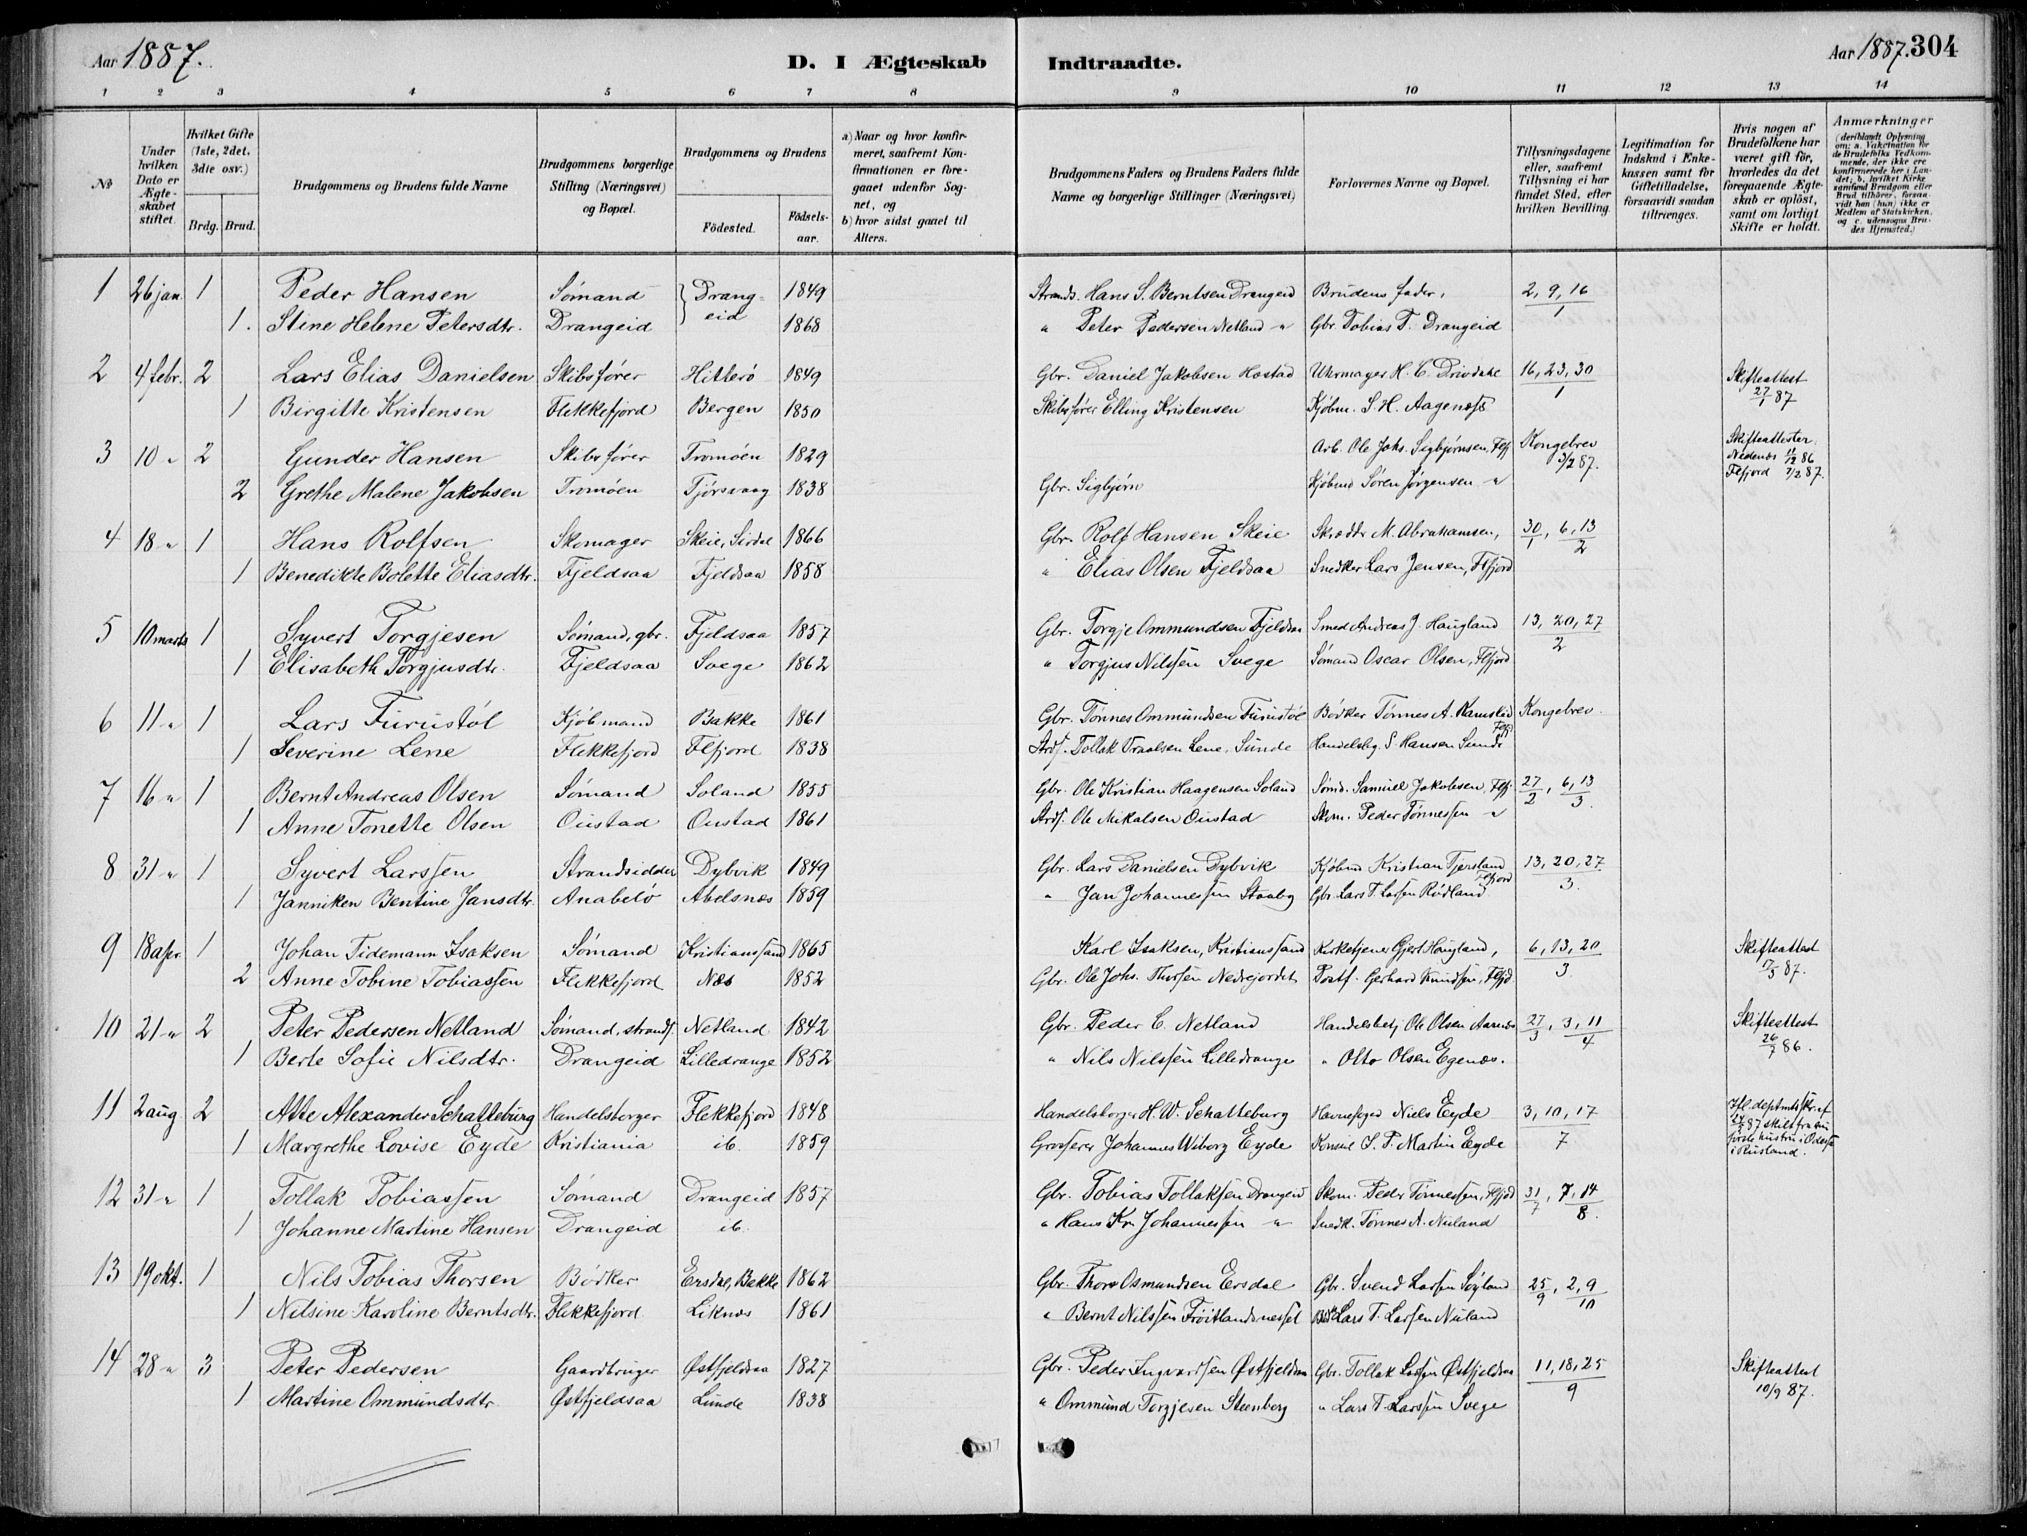 Aar 1887.
D. I Ægteskab Indtraadte.
Aar 1887. 304
1 2 3 4 5 6 7 8 9 10 11 12 13 14
No
Under hvilken Dato er Ægteskabet stiftet.
Hvilket Gifte (1ste, 2det, 3die osv.)
Brdg. Brud.
Brudgommens og Brudens fulde Navne
Brudgommens borgerlige Stilling (Næringsvei) og Bopæl.
Brudgommens og Brudens
Födested. Födselsaar.
a) Naar og hvor konfirmeret, saafremt Konfirmationen er foregaaet udenfor Sognet, og
b) hvor sidst gaaet til Alters.
Brudgommens Faders og Brudens Faders fulde Navne og borgerlige Stillinger (Næringsvei)
Forlovernes Navne og Bopæl.
Tillysningsdagene eller, saafremt Tillysning ei har fundet Sted, efter hvilken Bevilling.
Legitimation for Indskud i Enkekassen samt for Giftetilladelse, forsaavidt saadan tiltrænges.
Hvis nogen af Brudefolkene har været gift för, hvorledes da det foregaaende Ægteskab er oplöst, samt om lovligt Skifte er holdt.
Anmærkninger (deriblandt Oplysning om: a. Vaksination for de Brudefolks Vedkommende, der ikke ere konfirmerede her i Landet; b. hvilket Kirkesamfund Brudgom eller Brud tilhörer, forsaavidt han (hun) ikke er Medlem af Statskirken, og c. udensogns Brudes Hjemsted.)
1 26 jan. 1 Peder Hansen Sømand Drangeid 1849 Strands. Hans S. Berntsen Drangeid Brudens fader, 2, 9, 16/1
1. Stine Helene Petersdtr. Drangeid 1868 " Peter Pedersen Netland " Gbr. Tobias T. Drangeid
2 4 febr. 2 Lars Elias Danielsen Skibsfører Hitterø 1849 Gbr. Daniel Jakobsen Hostad Uhrmager H. C. Drivdahl 16, 23, 30/1 Skifteattest 27/1 87
1 Birgitte Kristensen Flekkefjord Bergen 1850 Skibsfører Elling Kristensen Kjøbm. S. H. Aagenæs
3 10 " 2 Gunder Hansen Skibsfører Tromøen 1829 Arb. Ole Johs. Sigbjørnsen, Flfj Kongebrev 3/2 87. Skifteattester Nedenæs 11/12 86 Flfjord 7/2 87.
2 Grethe Malene Jakobsen Tromøen Tjørsvaag 1838 Gbr. Sigbjørn Kjøbmd Søren Jørgensen "
4 18 " 1 Hans Rolfsen Skomager Skeie, Sirdal 1866 Gbr. Rolf Hansen Skeie Skrædder M. Abrahamsen, 30/1, 6, 13/2
1 Benedikte Bolette Eliasdtr. Fjeldsaa Fjeldsaa 1858 " Elias Olsen Fjeldsaa Snedker Lars Jensen, Flfjord
5 10 marts 1 Syvert Torgjesen Sømand, gbr. Fjeldsaa 1857 Gbr. Torgje Ommundsen Fjeldsaa Smed Andreas J. Haugland 13, 20, 27/2
1 Elisabeth Torgjusdtr. Fjeldsaa Svege 1862 " Torgjus Nilssen Svege Sømand Oscar Olsen, Flfjord
6 11 " 1 Lars Furustøl Kjøbmand Bakke 1861 Gbr. Tønnes Ommundsen Furustøl Bødker Tønnes A. Ramslid Flfj Kongebrev.
1 Severine Lene Flekkefjord Flfjord 1838 Arbf. Tollak Vraalsen Lene, Sunde Handelsbg. S. Hansen Sunde
7 16 " 1 Bernt Andreas Olsen Sømand Soland 1855 Gbr. Ole Kristian Haagensen Soland Sømd. Samuel Jakobsen, Flfj. 27/2, 6, 13/3
1 Anne Tonette Olsen Oustad Oustad 1861 Arbf. Ole Mikalsen Oustad Skom. Peder Tønnessen "
8 31 " 1 Syvert Larssen Strandsidder Dybvik 1849 Gbr. Lars Danielsen Dybvik Kjøbmd Kristian Tjersland Flfjord 13, 20, 27/3.
1 Janniken Bentine Jansdtr. Anabelø Abelsnæs 1859 " Jan Johannessen Staaby Gbr. Lars T. Larsen Rødland
9 18 apr. 1 Johan Tidemann Isaksen Sømand Kristianssand 1865 Karl Isaksen, Kristianssand Kirketjener Gjert Haugland, 6, 13, 20/3 Skifteattest 17/3 87.
2 Anne Tobine Tobiassen Flekkefjord Næs 1852 Gbr. Ole Johs. Thorsen Nedrejordet Postf. Gerhard Knudsen, Flfjd.
10 21 " 2 Peter Pedersen Netland Sømand, strands. Netland 1842 Gbr. Peder C. Netland Handelsbetj Ole Olsen Aarnæs 27/3, 3, 11/4 Skifteattest 26/7 86.
1 Berte Sofie Nilsdtr. Drangeid Lilledrange 1852 " Nils Nilssen Lilledrange " Otto Olsen Egenæs.
11 2 aug 2 Atte Alexander Schatteburg Handelsborger Flekkefjord 1848 Handelsborger H. W. Schatteburg Havnefoged Niels Eyde 3, 10, 17/7 Ifl. deptmtsskr. af 14/3 87 skilt fra sin første hustru i Odessa i Rusland.
1 Margrethe Lovise Eyde Kristiania ib. 1859 Grosserer Johannes Wiborg Eyde Konsul J. P. Martin Eyde
12 31 " 1 Tollak Tobiassen Sømand Drangeid 1857 Gbr. Tobias Tollaksen Drangeid Skom. Peder Tønnessen, Flfjd 31/7, 7, 14/8.
1 Johanne Martine Hansen Drangeid ib. " Hans Kr. Johannessen " Snedk. Tønnes A. Nuland
13 19 okt. 1 Nils Tobias Thorsen Bødker Ersdal, Bakke 1862 Gbr. Thore Osmundsen Ersdal Gbr. Svend Larsen Søyland 25/9, 2, 9/10
1 Nilsine Karoline Berntsdtr. Flekkefjord Liknæs 1861 " Bernt Nilssen Frøitlandsnesset Lars T. Larsen Nuland
14 28 " 3 Peter Pedersen Gaardbruger Østfjeldsaa 1827 Gbr. Peder Ingvartsen Østfjeldsaa Gbr. Tollak Larsen Østfjeldsaa 11, 18, 25/9 Skifteattest 10/9 87.
1 Martine Ommundsdtr Østfjeldsaa Lunde 1838 " Ommund Torgjesen Steenberg " Lars T. Larssen Svege